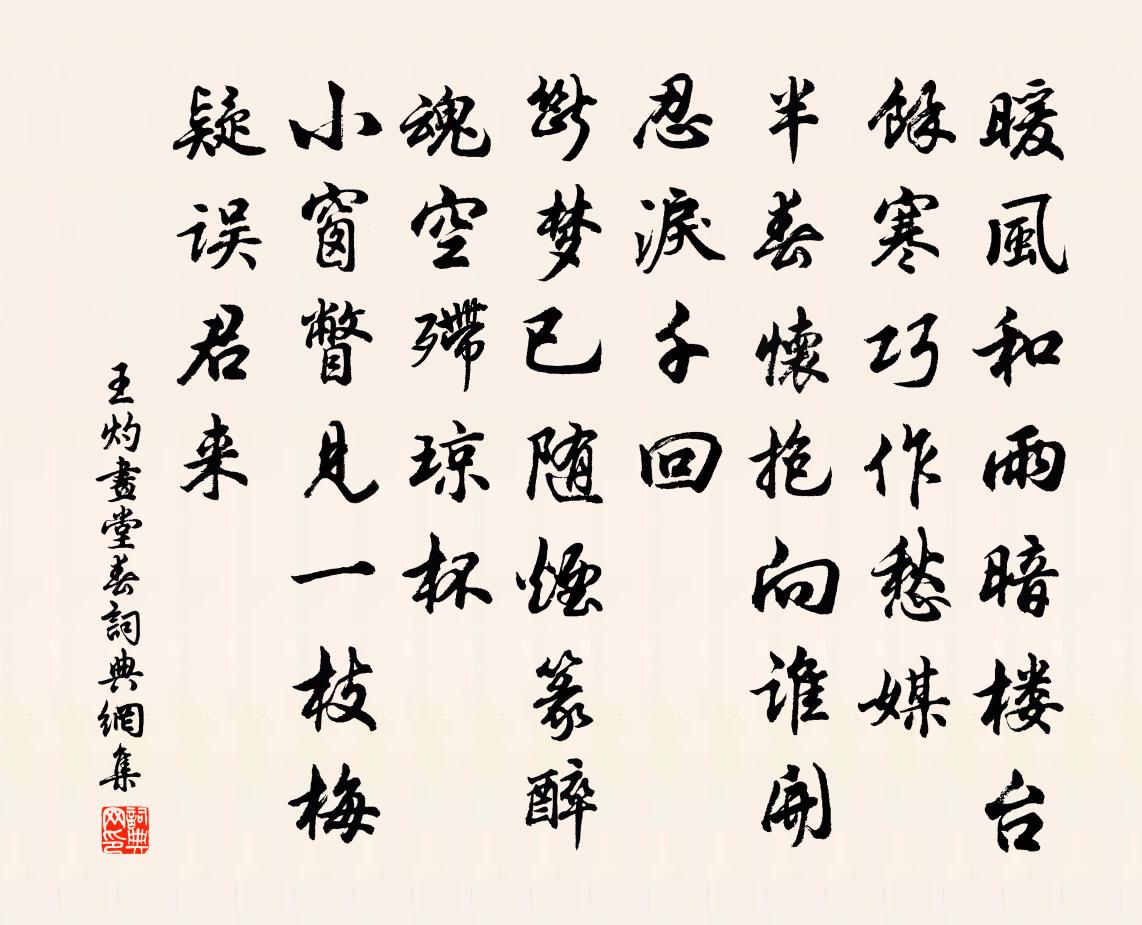 暖風和雨暗楼台
餘寒巧作愁媒
半春懷抱向谁開
忍淚千回
斷梦已随煙篆醉
魂空殢琼杯
小窗瞥見一枝梅
疑误君来
王灼畫堂春詞典網集
詞典网印